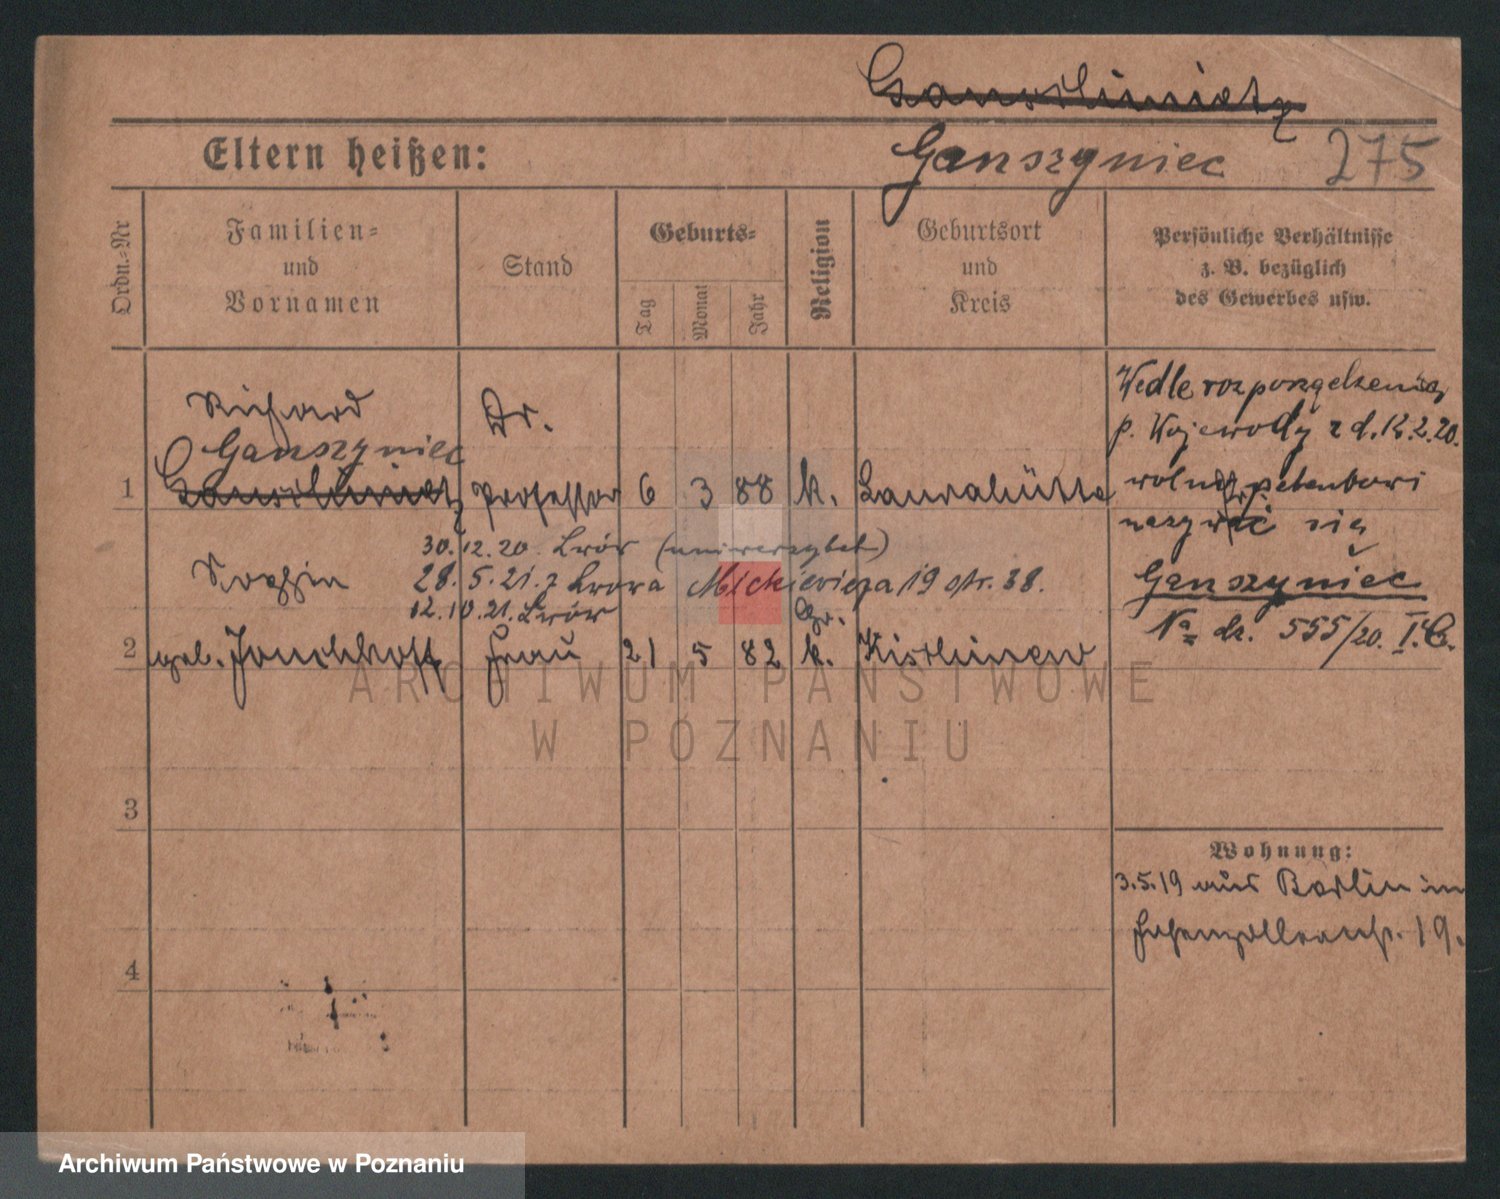 Ganschinietz
Eltern heißen:
Ganszyniec 275
Ordn.-Nr
Familien-
und
Vornamen
Stand
Geburts-
Tag
Monat
Jahr
Religion
Geburtsort
und
Kreis
Persönliche Verhältnisse
z. B. bezüglich
des Gewerbes usw.
Richard Dr.
Ganszyniec
1 Ganschinietz Professor 6 3 88 k. Laurahütte
30.12.20. Lwów (uniwersytet)
28.5.21. z Lwowa Mickiewicza 19 str. 38.
12.10.21. Lwów
2 geb. Frau 21 5 82 k. Kischinew
3
4
Wedle rozporządzenia
p. Wojewody z d. 12.2.20.
wolno petentowi
nazywać się
Ganszyniec
No dz. 555/20. I.
Wohnung:
3.5.19 aus Berlin in
Hohenzollernstr. 19.
ARCHIWUM PAŃSTWOWE
W POZNANIU
Archiwum Państwowe w Poznaniu